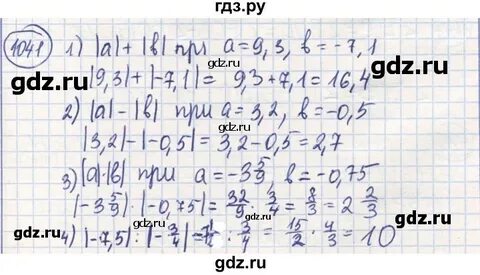 гдз.ру
1041
1) |a| + |b| при a = 9,3, b = -7,1
|9,3| + |-7,1| = 9,3 + 7,1 = 16,4
2) |a| - |b| при a = 3,2, b = -0,5
|3,2| - |-0,5| = 3,2 - 0,5 = 2,7
3) |a|·|b| при a = -3 5/9, b = -0,75
|-3 5/9| · |-0,75| = 32/9 · 3/4 = 8/3 = 2 2/3
4) |-7,5| : |-3/4| = : 3/4 = 15/2 · 4/3 = 10
gdz.ru
gdz.ru
gdz.ru
gdz.ru
gdz.ru
gdz.ru
gdz.ru
gdz.ru